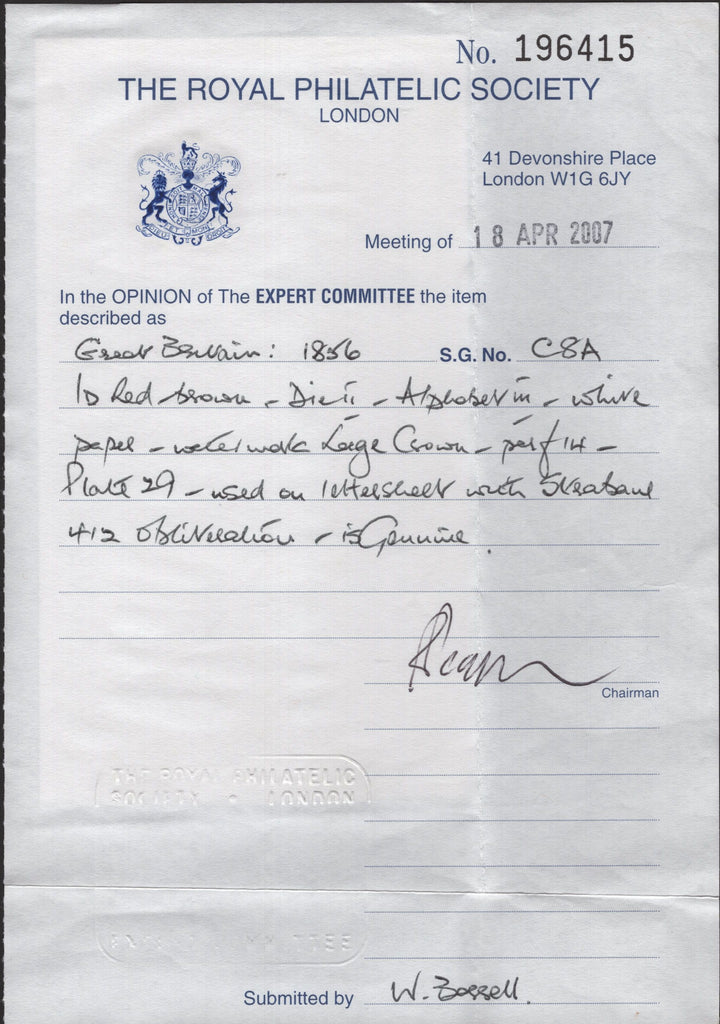 No. 196415
THE ROYAL PHILATELIC SOCIETY
LONDON
41 Devonshire Place
London W1G 6JY
Meeting of 18 APR 2007
In the OPINION of The EXPERT COMMITTEE the item
described as
Great Britain: 1856 S.G. No. C8A
1D Red-brown - Die II - Alphabet III - white
paper - watermark Large Crown - perf 14 -
Plate 29 - used on lettersheet with Strabane
412 obliteration - is Genuine.
Chairman
THE ROYAL PHILATELIC
SOCIETY • LONDON
EXPERT COMMITTEE
Submitted by W. Bossell.